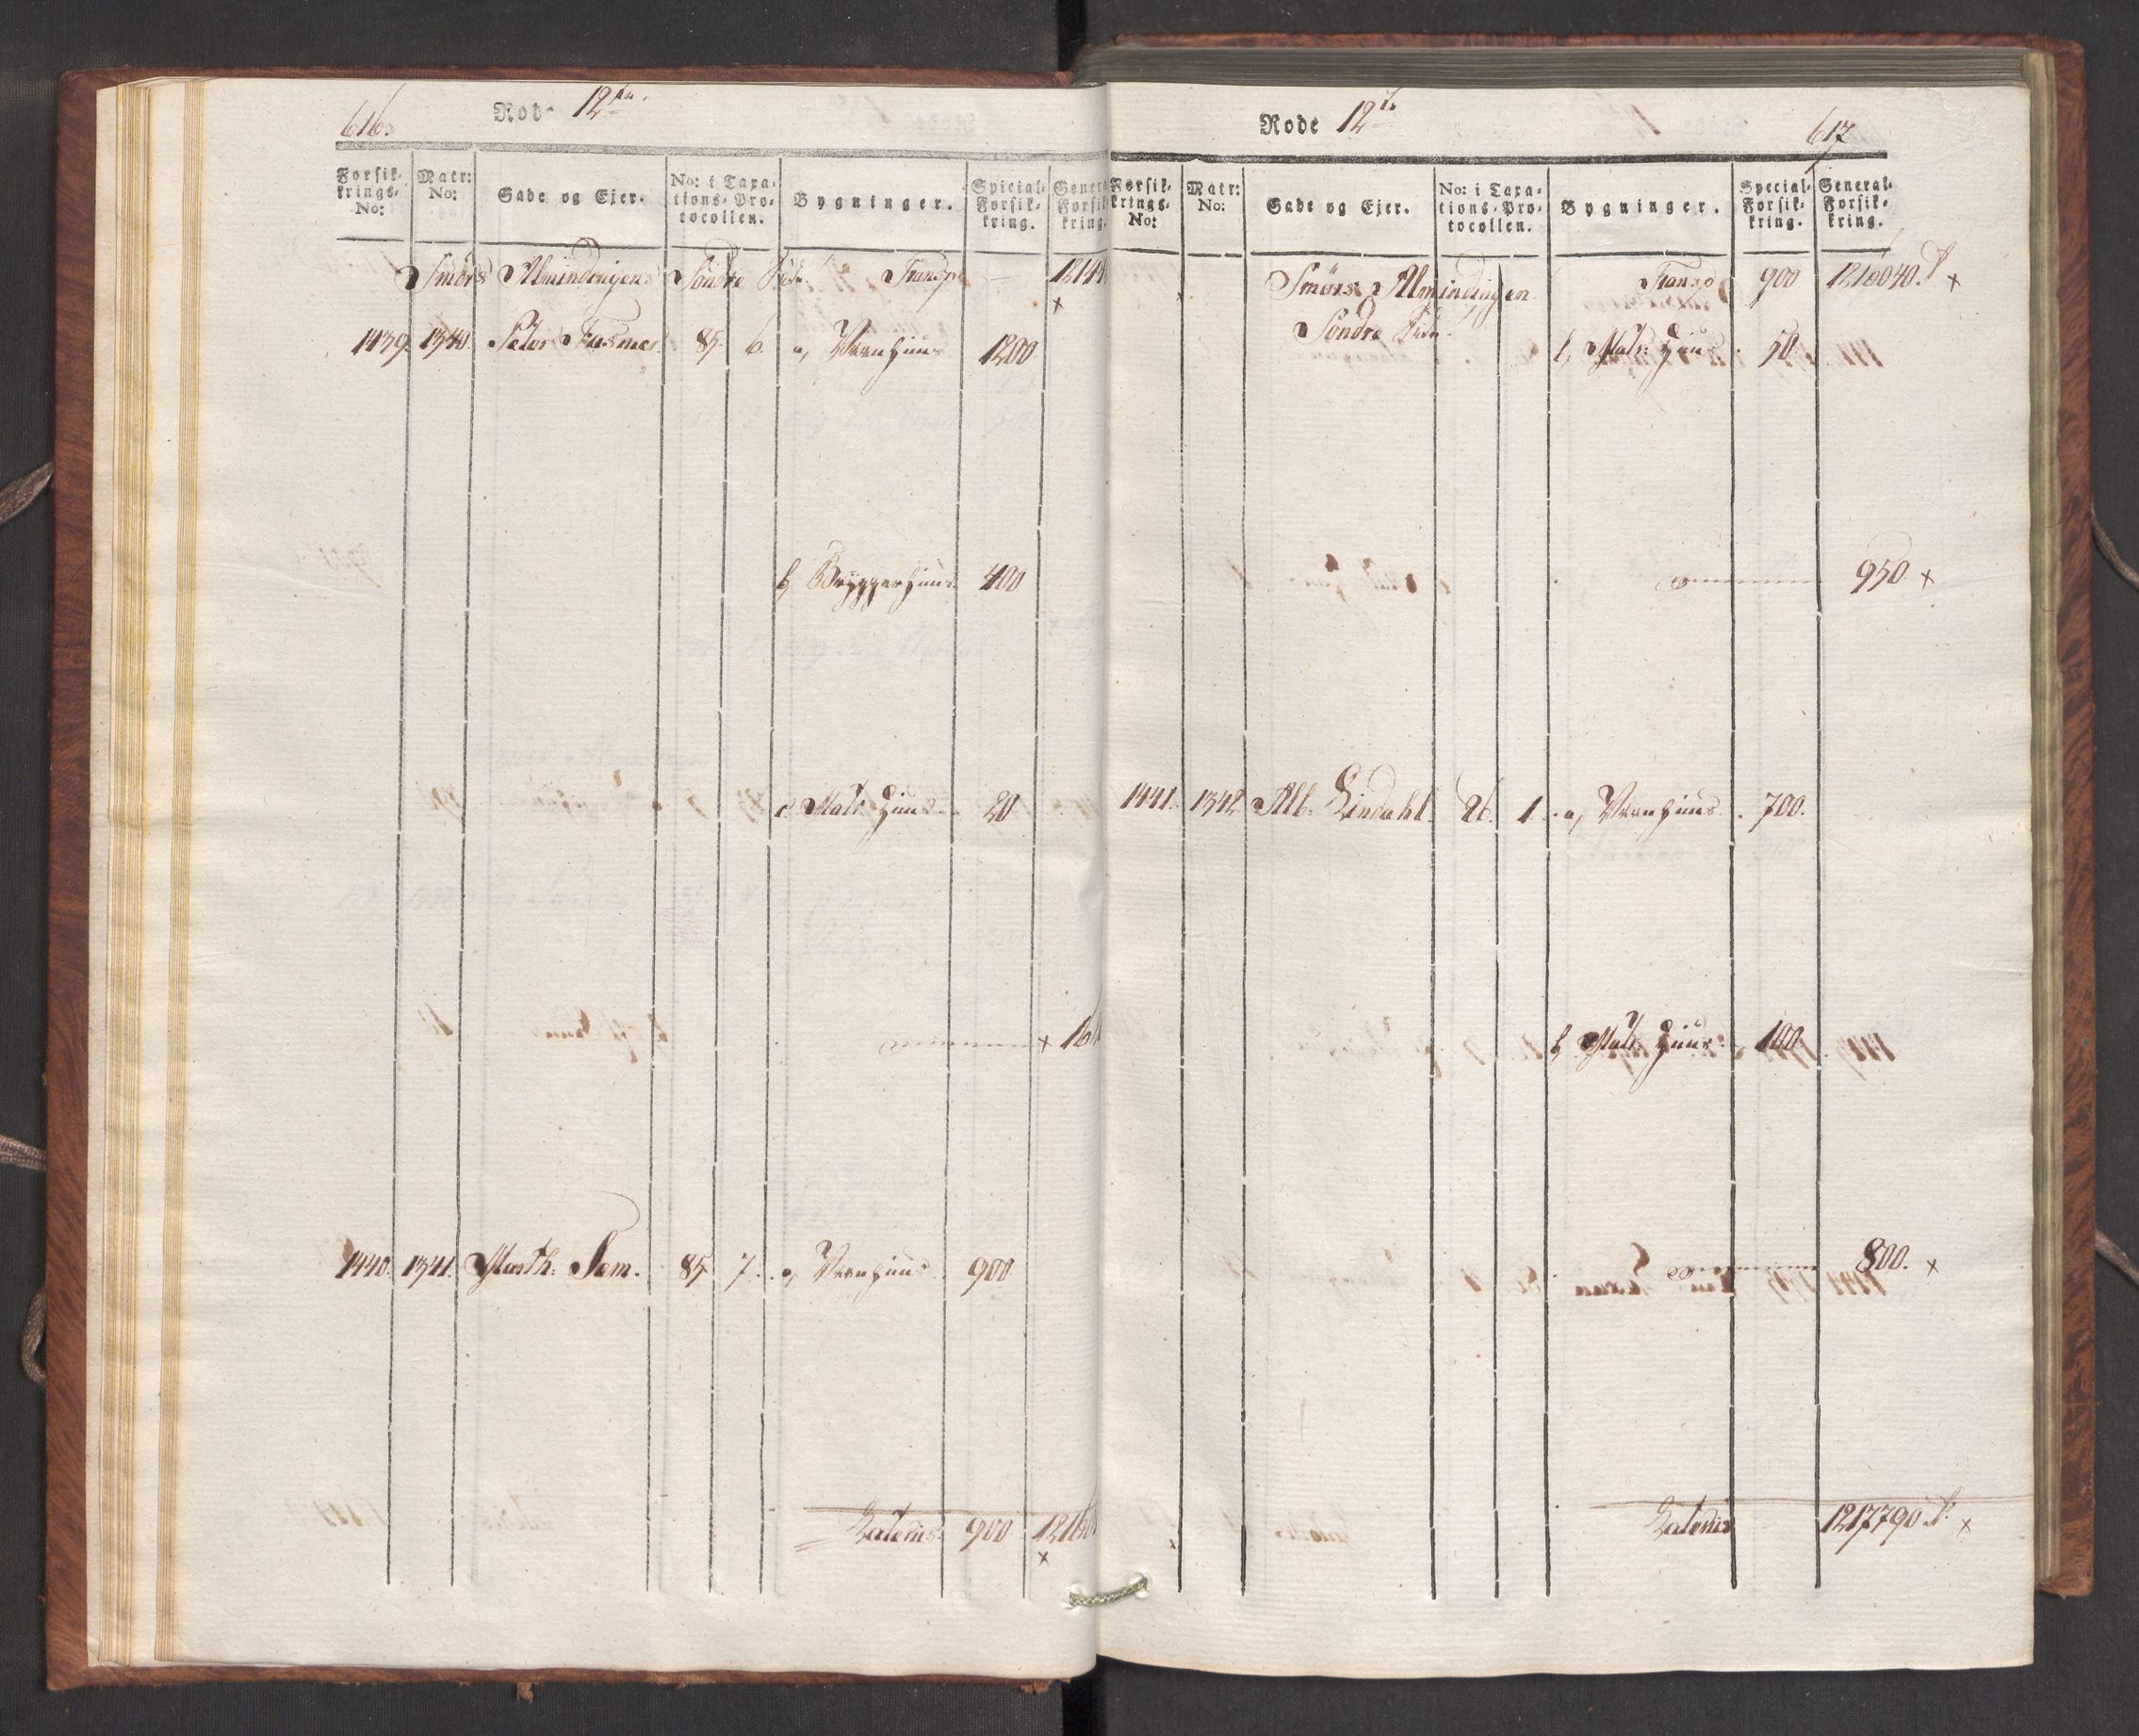 616. Rode 12te
Forsik- krings- No: | Matr: No: | Gade og Ejer. | No: i Taxa- tions-Pro- tocollen. | Bygninger. | Special- Forsik- kring. | General- Forsik- kring.
Smörs Almindingens Söndre Side Transp
1439. 1340. Peter Fasmer. 85 6. a, Vaanhuus 1200
b, Bryggerhuus 400
c. Mats: Huus 20
1440. 1341. Marth: Sem. 85 7. a, Vaanhuus 900
Lateris 900
Rode 12te 617
Forsik- krings- No: | Matr: No: | Gade og Ejer. | No: i Taxa- tions-Pro- tocollen. | Bygninger. | Special- Forsik- kring. | General- Forsik- kring.
Smörs Almindingen Transp 900 1216040. x
Söndre Side
b, Mats: Huus 50.
950. x
1441. 1342 Alb. Lindahl. 86. 1. a, Vaanhuus. 700.
b, Mats: Huus 100
800. x
Lateris 1217790 x